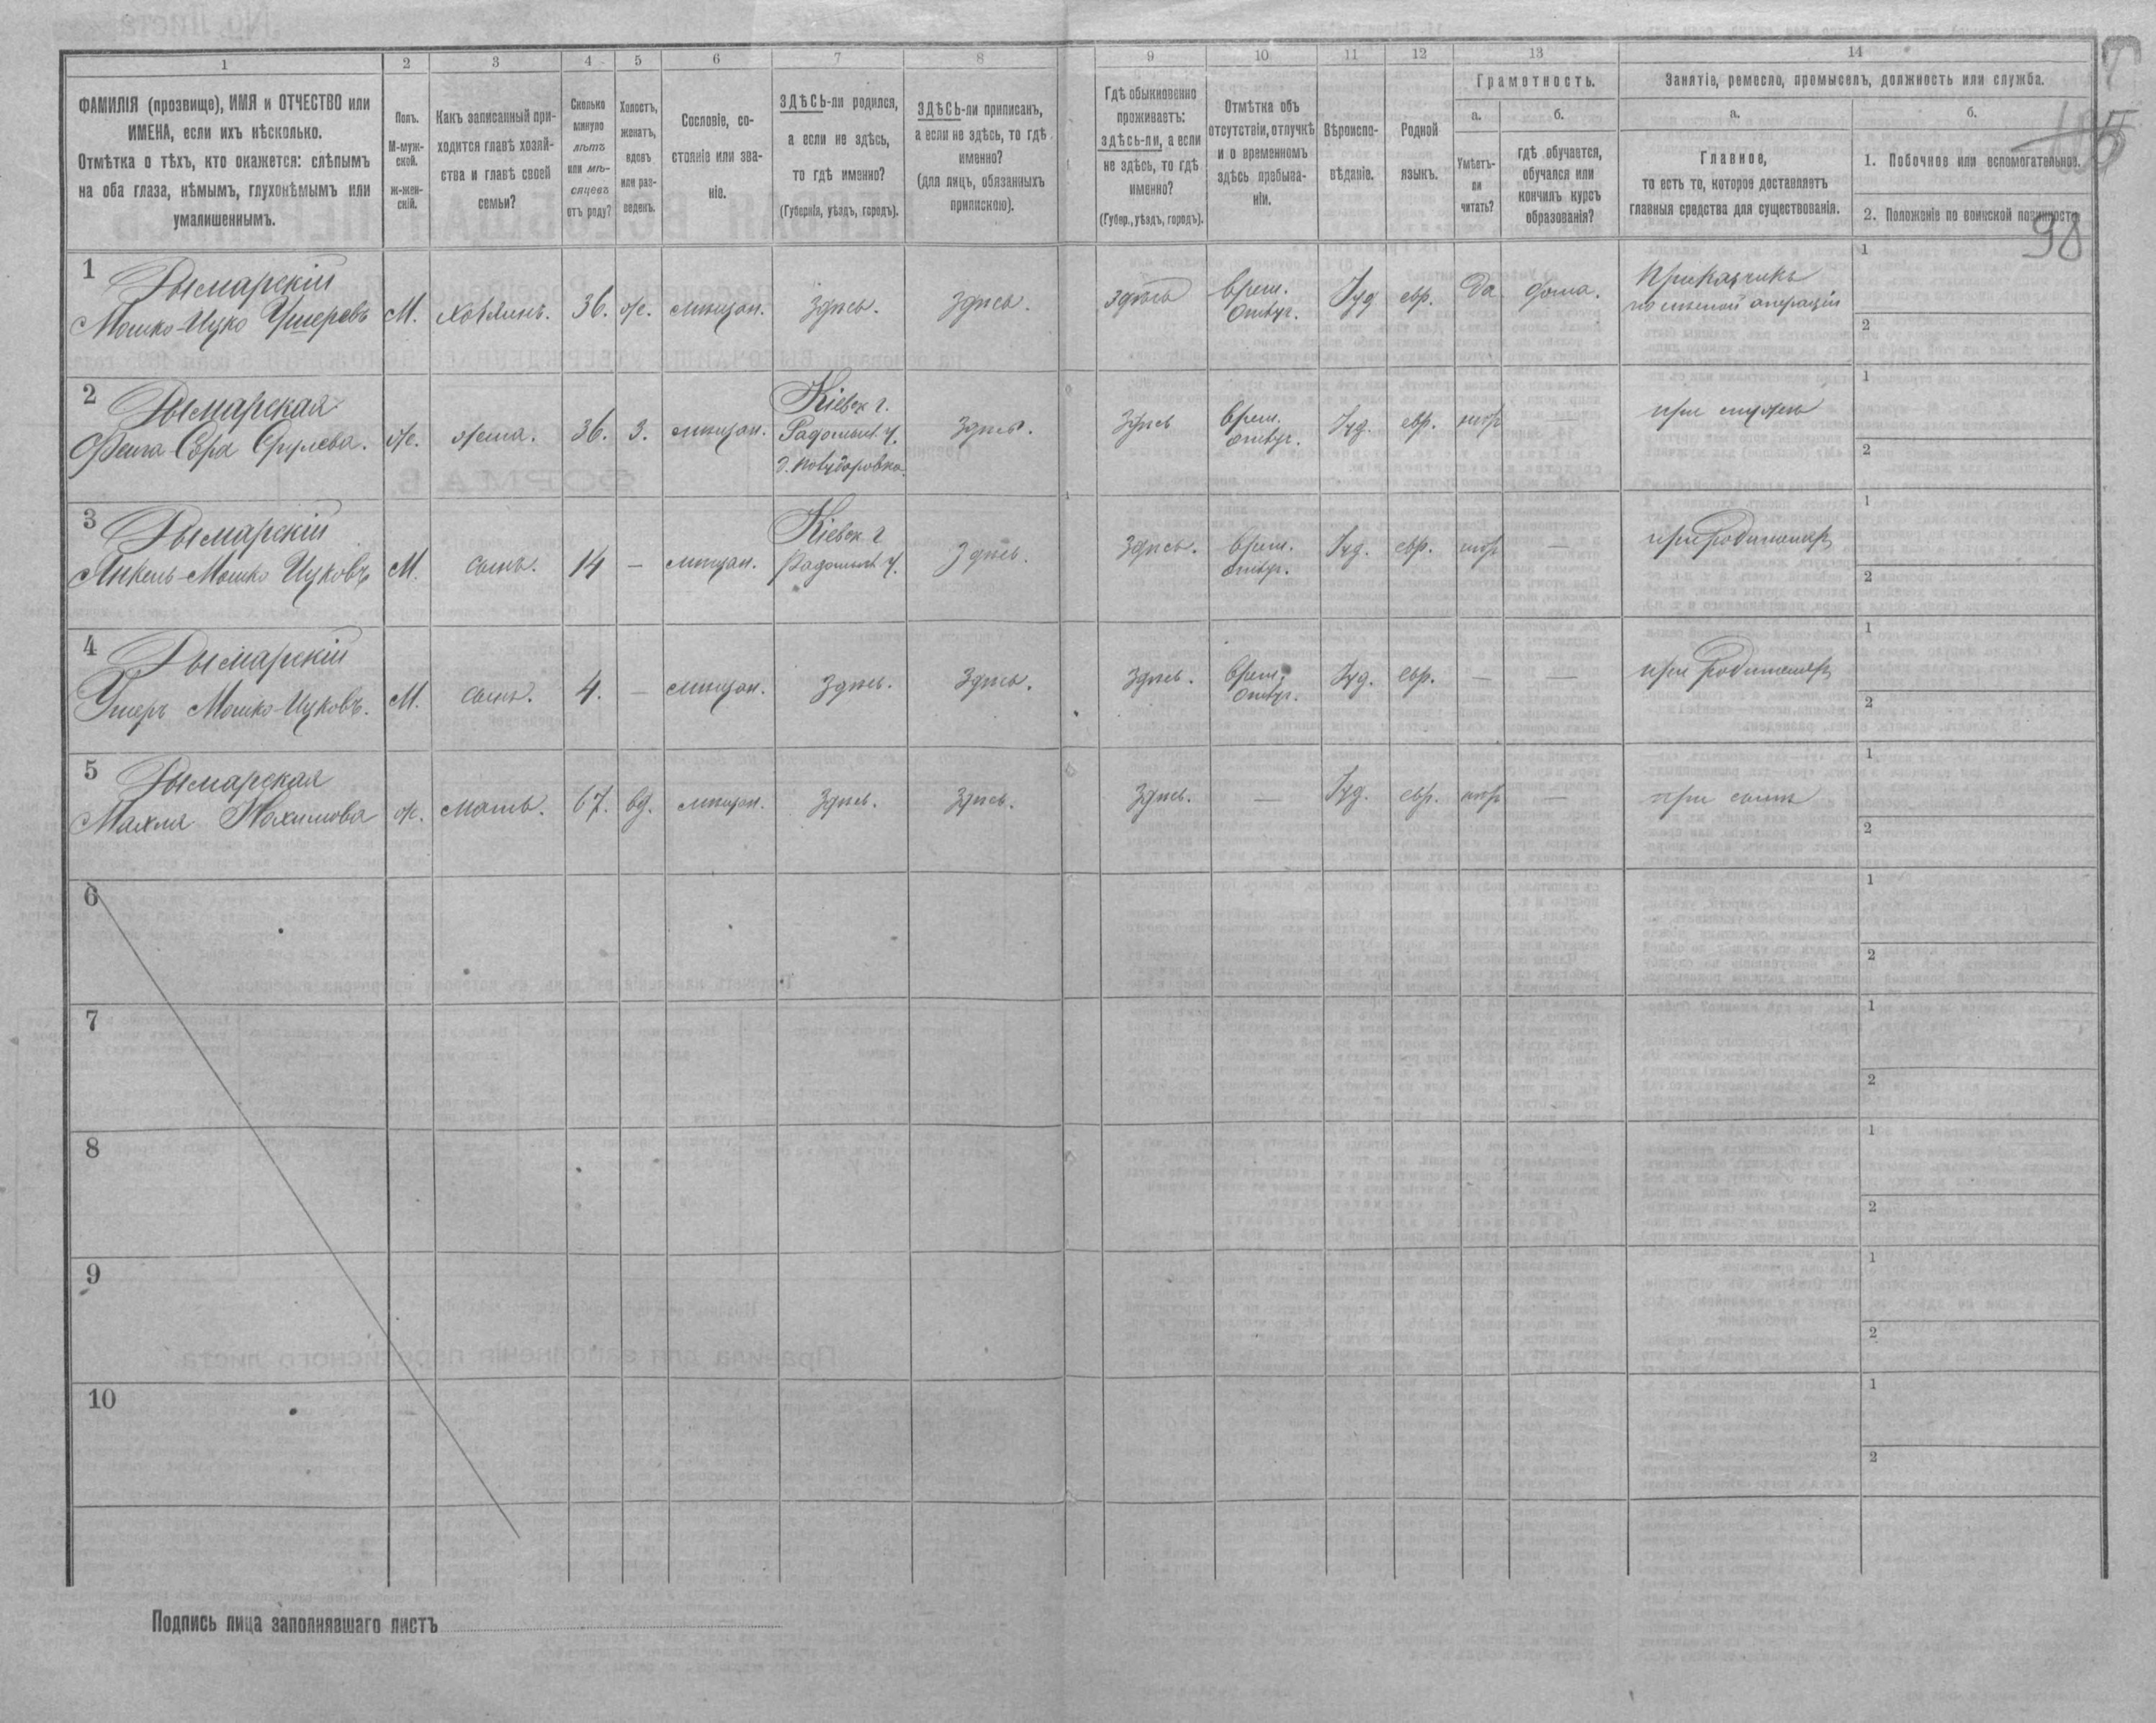 1 2 3 4 5 6 7 8 9 10 11 12 13 14
ФАМИЛІЯ (прозвище), ИМЯ и ОТЧЕСТВО или
ИМЕНА, если ихъ нѣсколько.
Отмѣтка о тѣхъ, кто окажется: слѣпымъ
на оба глаза, нѣмымъ, глухонѣмымъ или
умалишеннымъ.
Полъ.
М-муж-
ской.
ж-жен-
скій.
Какъ записанный при-
ходится главѣ хозяй-
ства и главѣ своей
семьи?
Сколько
минуло
лѣтъ
или мѣ-
сяцевъ
отъ роду?
Холостъ,
женатъ,
вдовъ
или раз-
веденъ.
Сословіе, со-
стояніе или зва-
ніе.
ЗДѢСЬ-ли родился,
а если не здѣсь,
то гдѣ именно?
(Губернія, уѣздъ, городъ).
ЗДѢСЬ-ли приписанъ,
а если не здѣсь, то гдѣ
именно?
(для лицъ, обязанныхъ
припискою).
Гдѣ обыкновенно
проживаетъ:
здѣсь-ли, а если
не здѣсь, то гдѣ
именно?
(Губер., уѣздъ, городъ).
Отмѣтка объ
отсутствіи, отлучкѣ
и о временномъ
здѣсь пребыва-
ніи.
Вѣроиспо-
вѣданіе.
Родной
языкъ.
Грамотность.
а.
Умѣетъ-
ли
читать?
б.
гдѣ обучается,
обучался или
кончилъ курсъ
образованія?
Занятіе, ремесло, промыселъ, должность или служба.
а.
Главное,
то есть то, которое доставляетъ
главныя средства для существованія.
б.
1. Побочное или вспомогательное.
2. Положеніе по воинской повинности.
98
1
Рымарскій
Мошко-Ицко Ушеровъ М. хозяинъ. 36. же. мѣщан. Здѣсь. Здѣсь. здѣсь Врем. Отлуч. Іуд евр. Да дома. Приказчикъ
1
2
2
Рымарская
Фейга Сура Срулева. же. жена. 36. З. мѣщан. Кіевск г. Радомысл. у. Здѣсь. Здѣсь Врем. отлуч. Іуд. евр. нѣтъ — при мужѣ
1
2
3
Рымарскій
Янкель-Мошко Ицковъ М. сынъ. 14 — мѣщан. Кіевск г Радомысл у. Здѣсь. Здѣсь. Врем. отлуч. Іуд. евр. нѣтъ — при родителяхъ
1
2
4
Рымарскій
Ушеръ Мошко-Ицковъ. М. сынъ. 4. — мѣщан. Здѣсь. Здѣсь. Здѣсь. Врем. Отлуч. Іуд. евр. — — при родителяхъ
1
2
5
Рымарская
Махля Нахимова ж. мать. 67. вд. мѣщан. Здѣсь. Здѣсь. Здѣсь. — Іуд. евр. нѣтъ — при сынѣ
1
2
6
1
2
7
1
2
8
1
2
9
1
2
10
1
2
Подпись лица заполнявшаго листъ